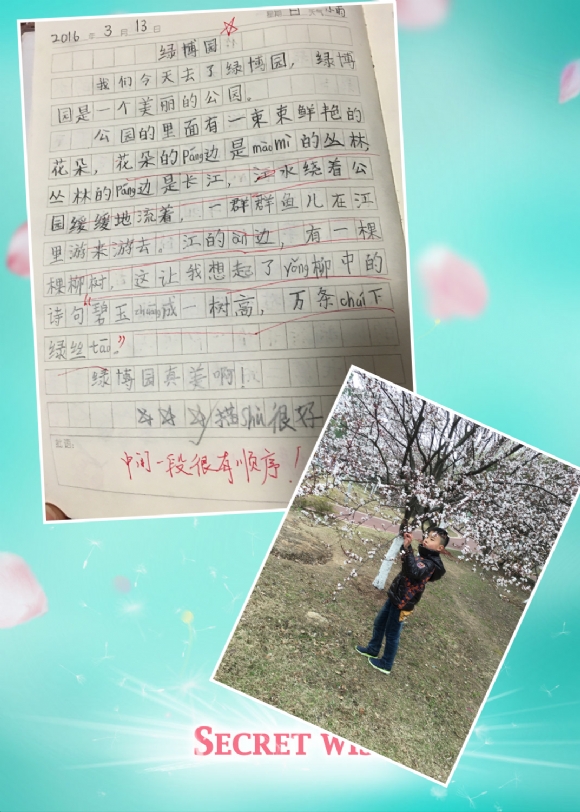 2016 年 3 月 13 日
绿博园
我们今天去了绿博园，绿博
园是一个美丽的公园。
公园的里面有一束束鲜艳的
花朵，花朵的páng边是mào mì的丛林，
丛林的páng边是长江，江水绕着公
园缓缓地流着，一群群鱼儿在江
里游来游去。江的àn边，有一棵
棵柳树，这让我想起了yǒng柳中的
诗句“碧玉zhuāng成一树高，万条chuí下
绿丝tāo。”
绿博园真美啊！
描shù很好
中间一段很有顺序！
SECRET WIS